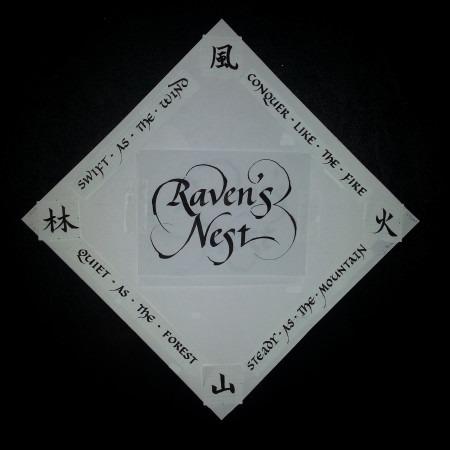 風
SWIFT · AS · THE · WIND
CONQUER · LIKE · THE · FIRE
Raven's
Nest
林
火
QUIET · AS · THE · FOREST
STEADY · AS · THE · MOUNTAIN
山